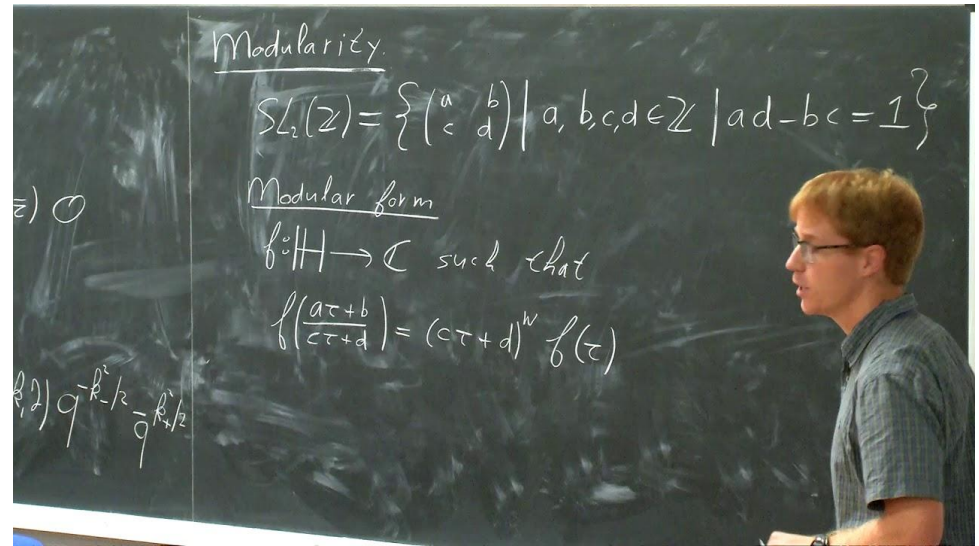 Modularity.
SL₂(ℤ) = {(a b c d) | a, b, c, d ∈ ℤ | ad - bc = 1}
Modular form
f: ℍ → ℂ such that
f((aτ+b)/(cτ+d)) = (cτ+d)^w f(τ)